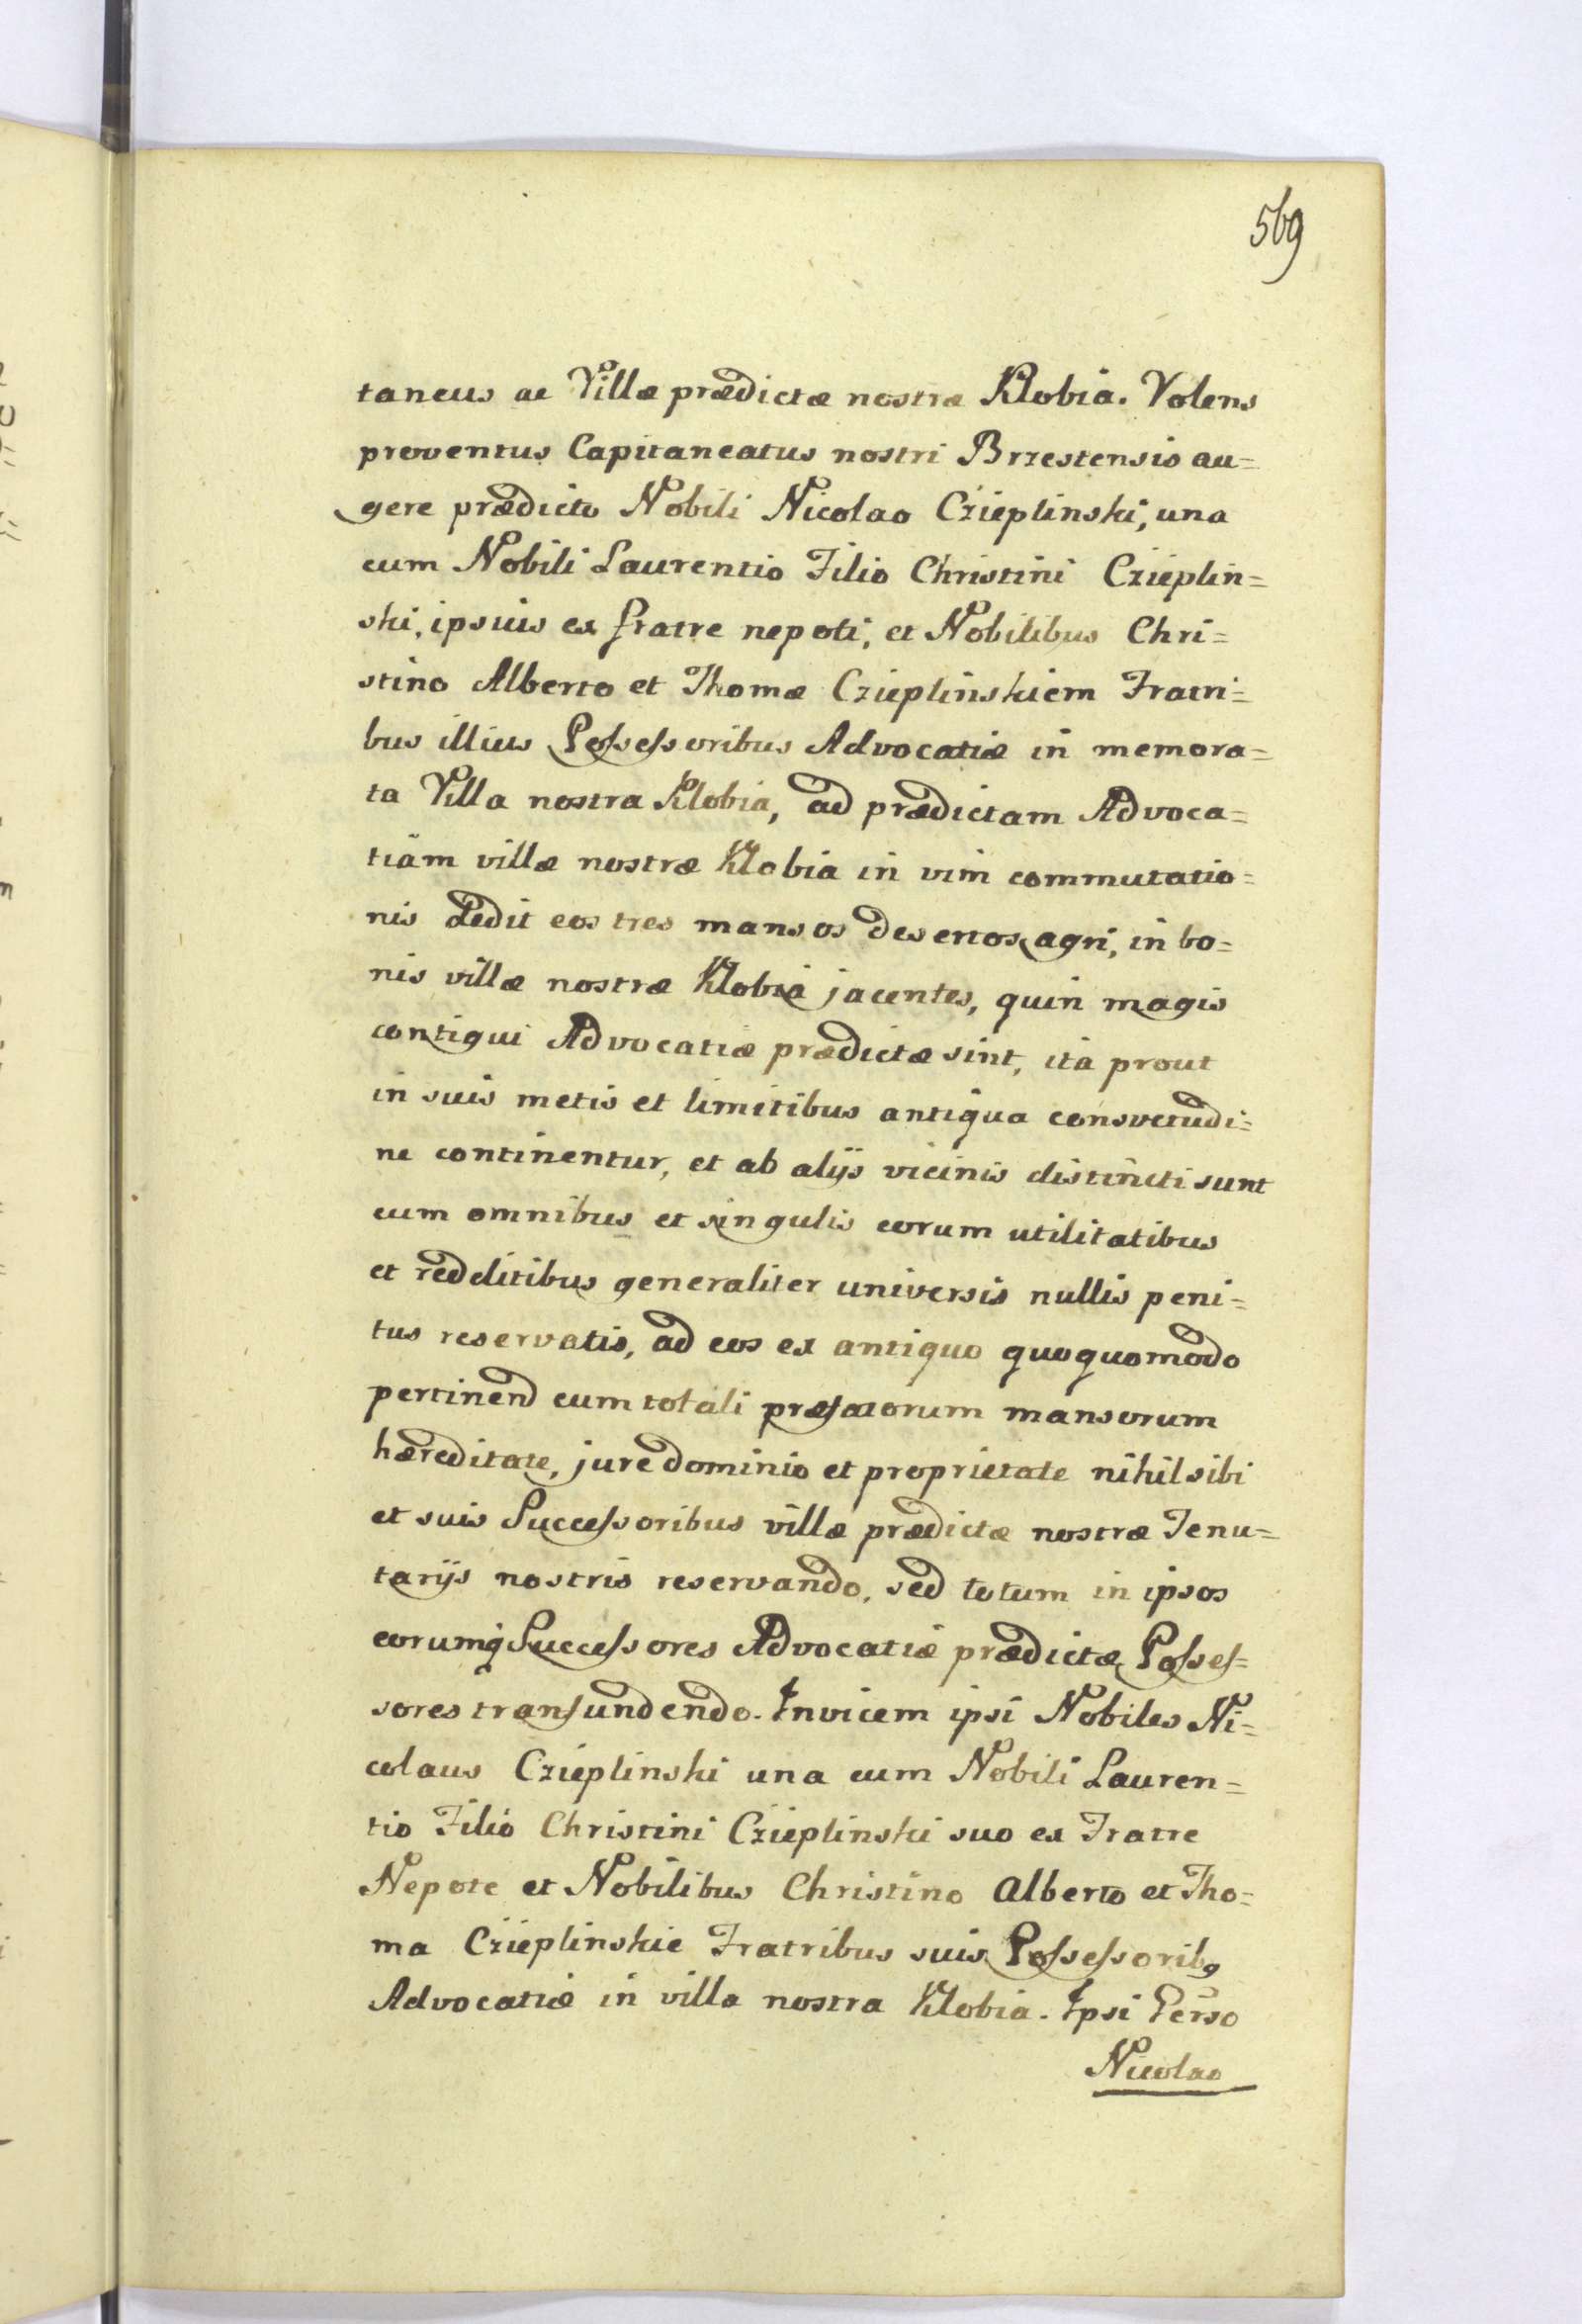 569
taneus ac Villæ prædictæ nostræ Klobia. Volens
proventus Capitaneatus nostri Brzestensis au=
gere prædicto Nobili Nicolao Czieplinski, una
cum Nobili Laurentio Filio Christini Czieplin=
ski, ipsuis ex fratre nepoti, et Nobilibus Chri=
stino Alberto et Thomæ Czieplinskiem Fratri=
bus illius Possessoribus Advocatiæ in memora=
ta Villa nostra Klobia, ad prædictam Advoca=
tiam villæ nostræ Klobia in vim commutatio=
nis Dedit eos tres mansos desertos agri, in bo=
nis villæ nostræ Klobia jacentes, quin magis
contigui Advocatiæ prædictæ sint, ita prout
in suis metis et limitibus antiqua consvetudi=
ne continentur, et ab alijs vicinis distincti sunt
cum omnibus et singulis eorum utilitatibus
et redditibus generaliter universis nullis peni=
tus reservatis, ad eos ex antiquo quoquomodo
pertinend cum totali præfatorum mansorum
hæreditate, jure dominio et proprietate nihil sibi
et suis Successoribus villæ prædictæ nostræ Tenu=
tarijs nostris reservando, sed totum in ipsos
eorumq Successores Advocatiæ prædictæ Posses=
sores transfundendo. Invicem ipsi Nobiles Ni=
colaus Czieplinski una cum Nobili Lauren=
tio Filio Christini Czieplinski suo ex Fratre
Nepote et Nobilibus Christino Alberto et Tho=
ma Czieplinskie Fratribus suis Possessorib9
Advocatiæ in villa nostra Klobia. Ipsi Perso
Nicolao